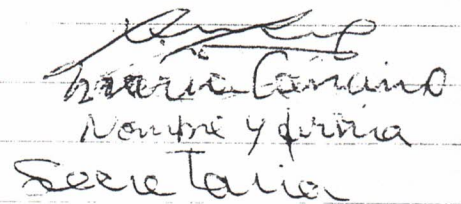 María
Nombre y firma
Secretaria